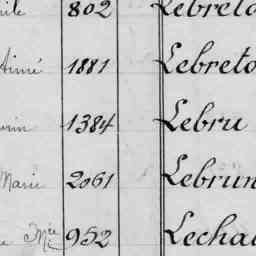 802 Lebreto
Aimé 1881 Lebreto
1384 Lebru
Marie 2061 Lebrun
952 Lechal